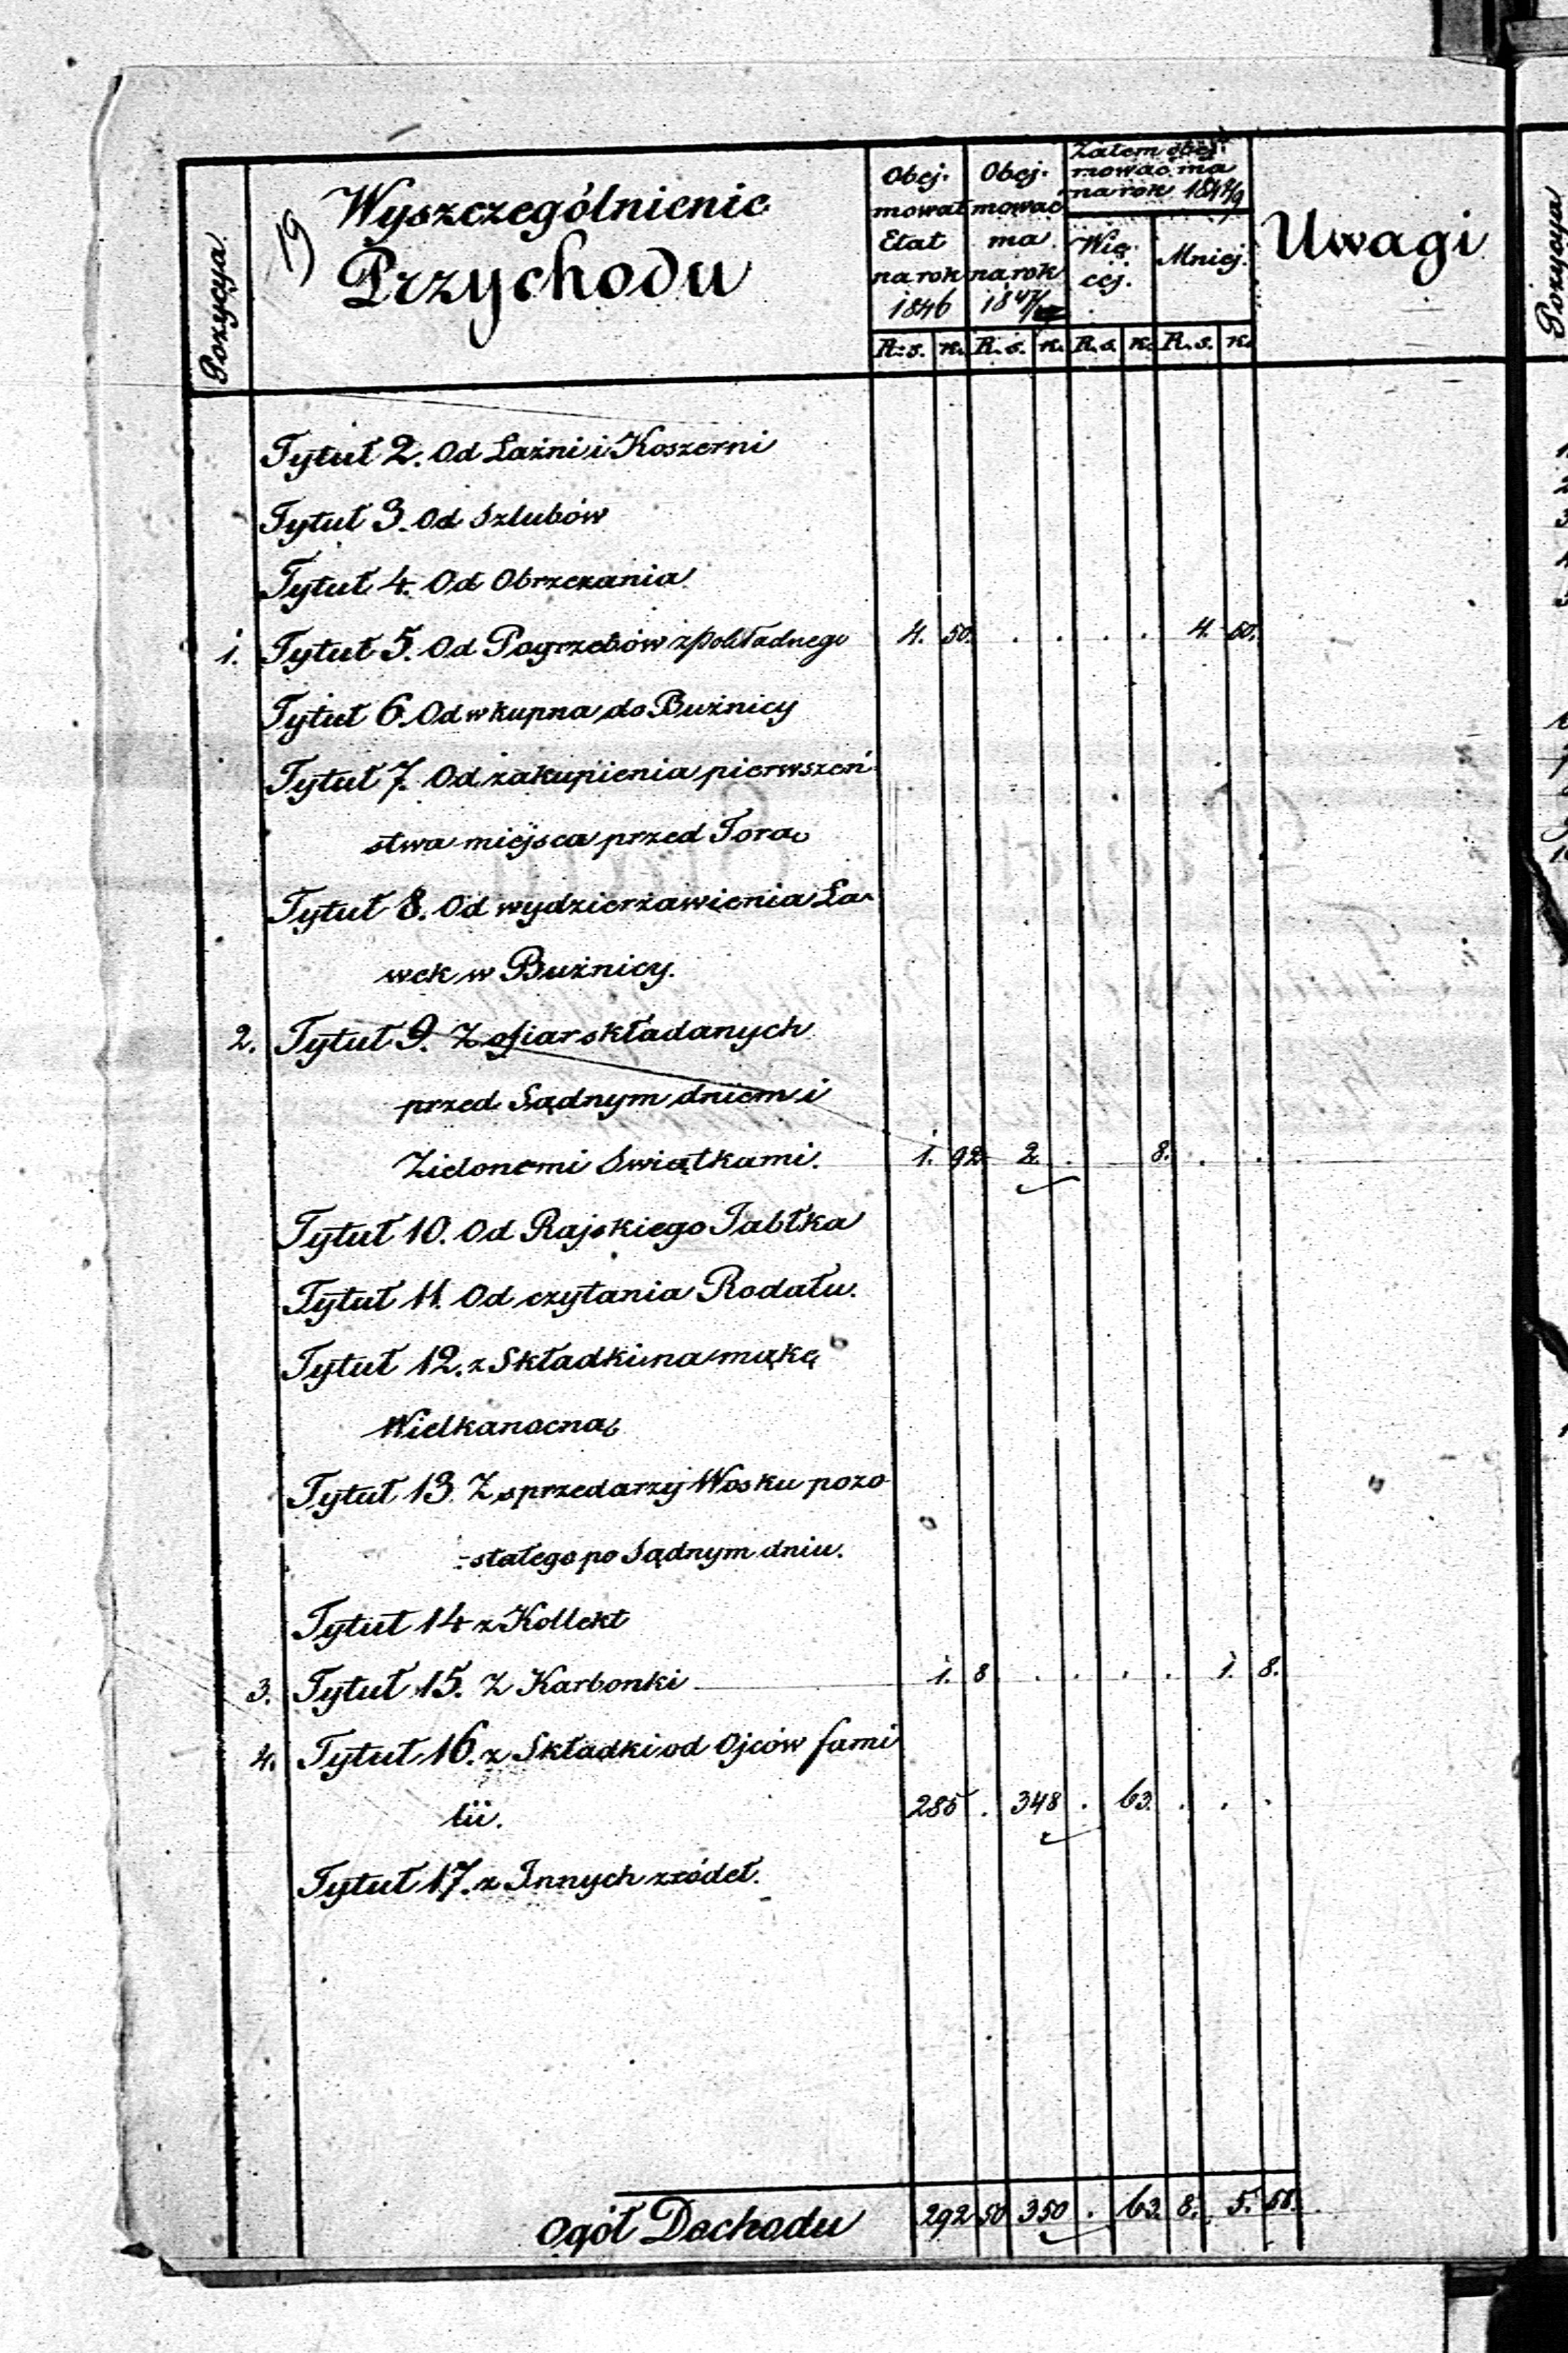 Pozycya
19
Wyszczególnienie
Przychodu
Obej-
mował
Etat
na rok
1846
Obej-
mować
ma
na rok
Zatem obej-
mować ma
na rok 184
Wię-
cej.
Mniej.
Uwagi
R: s. k. R. s. k. R. s. k. R. s. k.
Tytuł 2. Od Łaźni i Koszerni
Tytuł 3. Od Szlubów
Tytuł 4. Od Obrzezania
1. Tytuł 5. Od Pogrzebów z Pokładnego 4. 50. . . . . 4. 50.
Tytuł 6. Od wkupna do Bużnicy
Tytuł 7. Od zakupienia pierwszeń
stwa miejsca przed Torą
Tytuł 8. Od wydzierżawienia Ła-
wek w Bużnicy.
2. Tytuł 9. Z ofiar składanych
przed Sądnym dniem i
Zielonemi Swiątkami. 1. 92. 2. . 8. . .
Tytuł 10. Od Rajskiego Jabłka
Tytuł 11. Od czytania Rodału.
Tytuł 12. z Składki na mąkę
Wielkanocną
Tytuł 13. Z sprzedarzy Wosku pozo
-stałego po Sądnym dniu.
Tytuł 14 z Kollekt
3. Tytuł 15. Z Karbonki 1. 8 . . . . 1. 8.
4. Tytuł 16. z Składki od Ojców fami
lii. 285 . 348 . 63. . . .
Tytuł 17. z Innych źródeł.
Ogół Dochodu 292 50 350 . 63. 8. 5. 58.
Pozycya